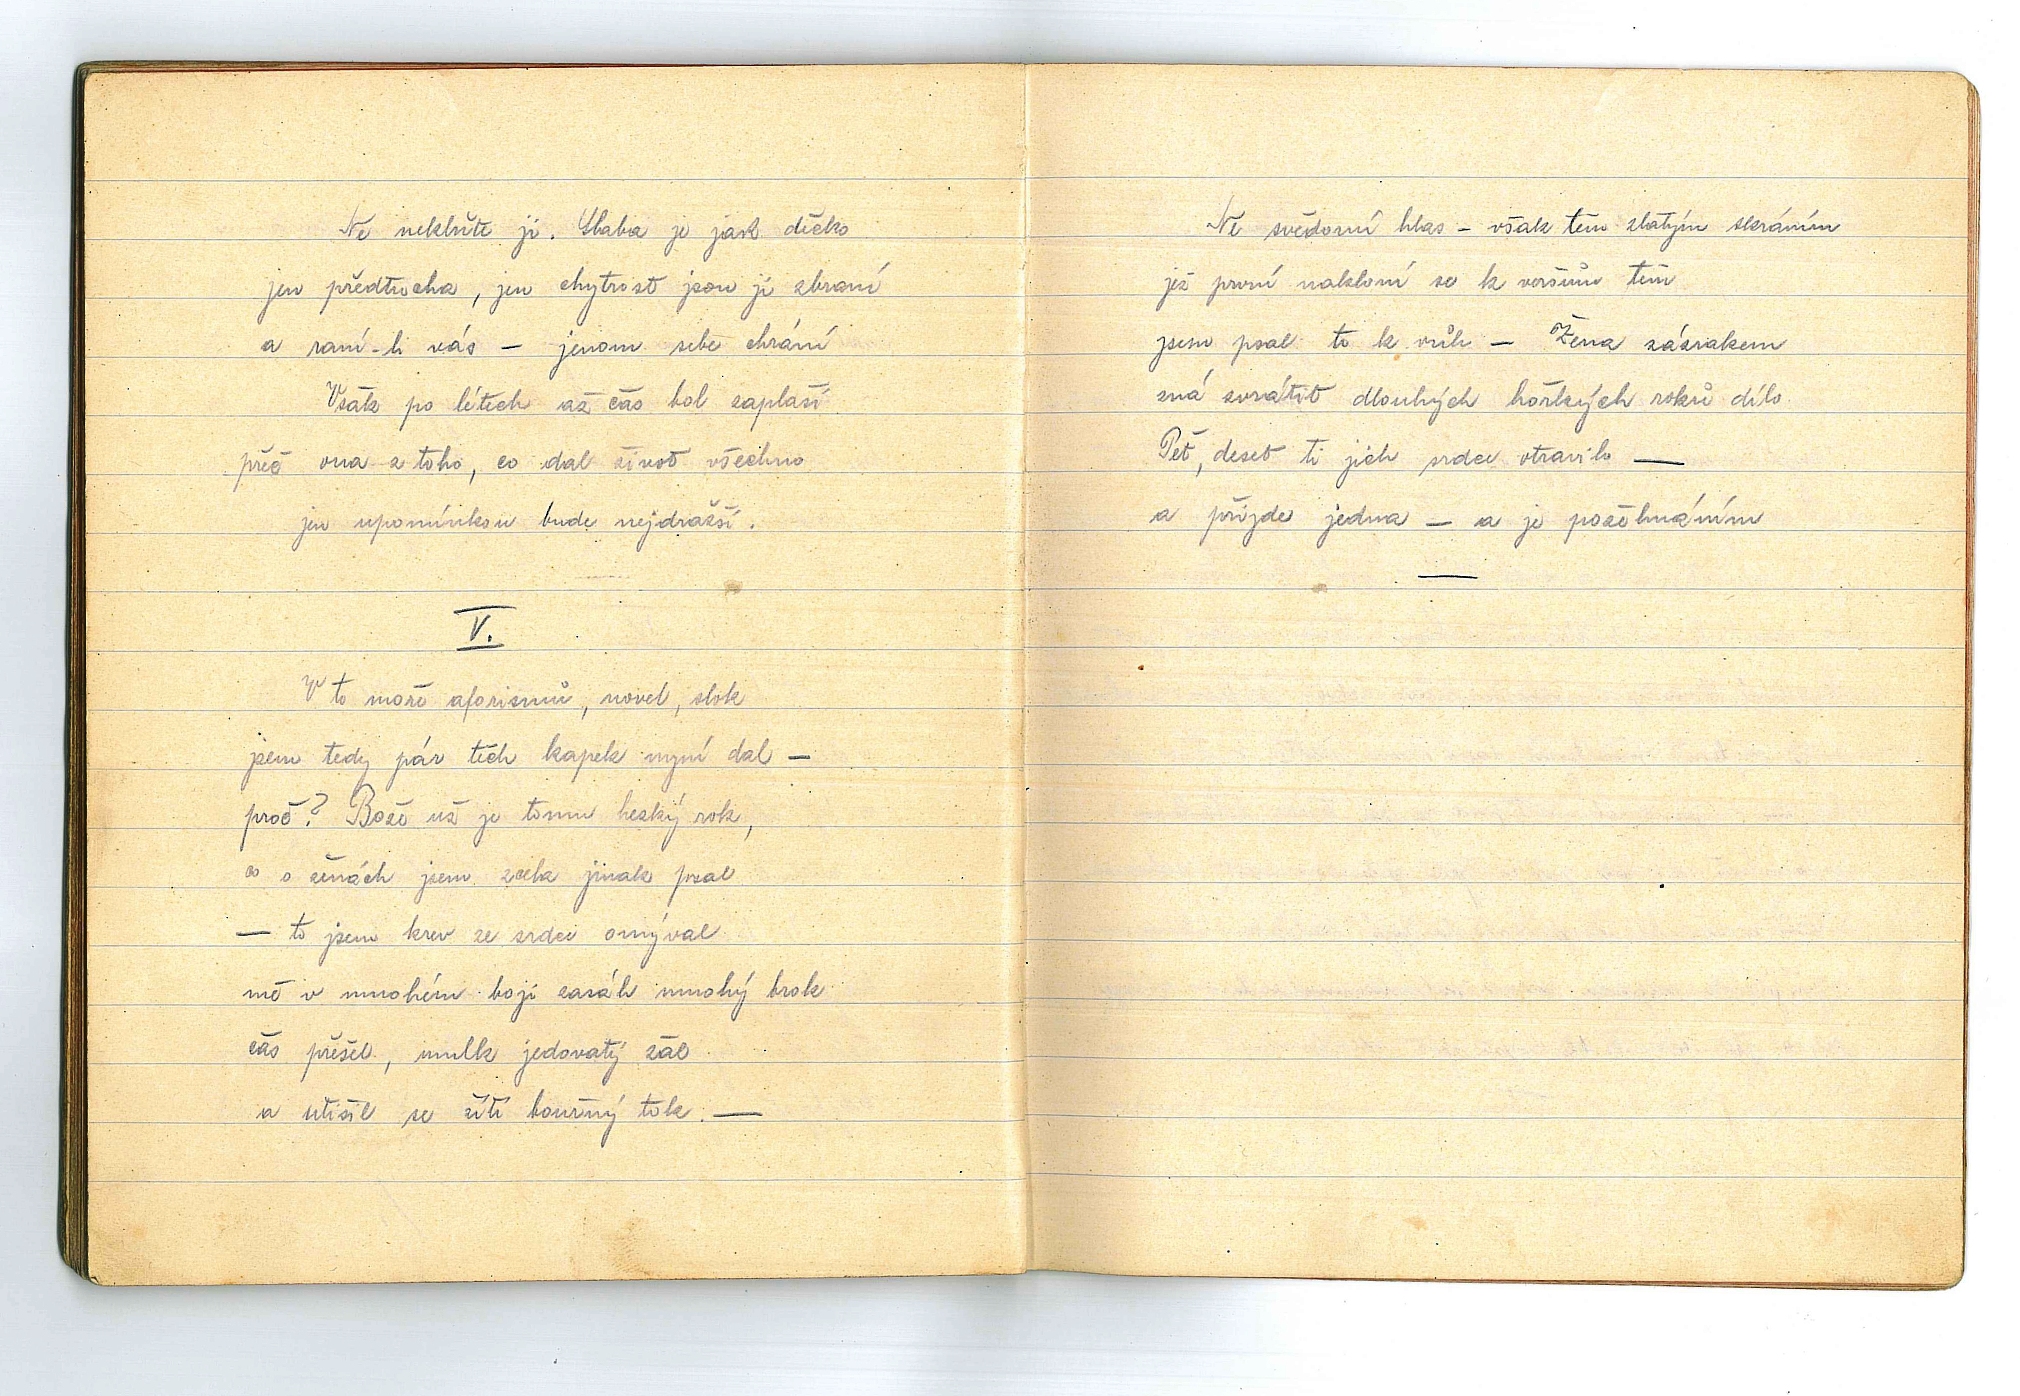 Ne neklňte jí. Slaba je jak děcko
jen předtucha, jen chytrost jsou jí zbraní
a raní-li vás – jenom sebe chrání
Však po létech až čas bol zaplaší
přec ona z toho, co dal život všechno
jen upomínkou bude nejdražší.
V.
V to moře aforismů, novel, slok
jsem tedy pár těch kapek nyní dal –
proč? Bože už je tomu hezký rok,
co o ženách jsem zcela jinak psal
— to jsem krev ze srdce omýval
mě v mnohém boji zasáh mnohý brok
čas přešel, umlk jedovatý žal
a utišil se žití bouřný tok. —
Ne svědomí hlas – však těm zlatým skráním
jež první nakloní se k veršům těm
jsem psal to k vůli – Žena zázrakem
zná zvrátit dlouhých hořkých roků dílo
Pět, deset ti jich srdce otravilo —
a přijde jedna – a je požehnáním